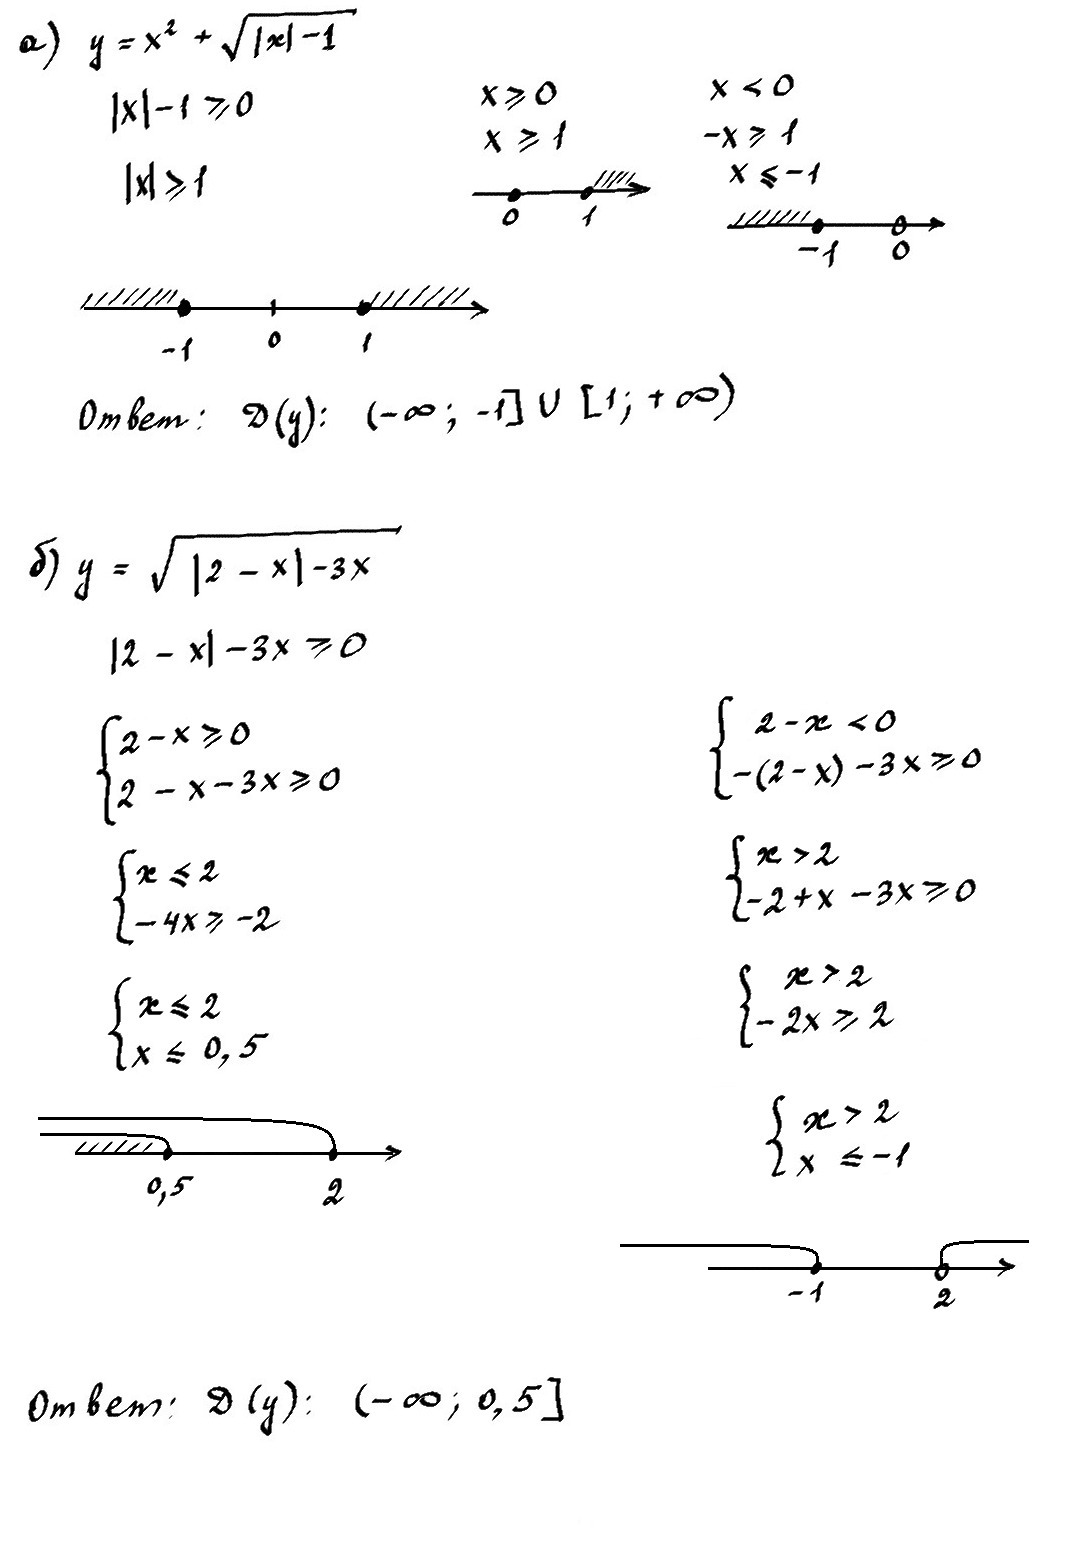 а) y = x² + √(|x| - 1)
|x| - 1 ⩾ 0
|x| ⩾ 1
x ⩾ 0
x ⩾ 1
0 1
x < 0
-x ⩾ 1
x ⩽ -1
-1 0
-1 0 1
Ответ: D(y): (-∞; -1] ∪ [1; +∞)
б) y = √(|2 - x| - 3x)
|2 - x| - 3x ⩾ 0
{ 2 - x ⩾ 0
2 - x - 3x ⩾ 0
{ x ⩽ 2
-4x ⩾ -2
{ x ⩽ 2
x ⩽ 0,5
0,5 2
{ 2 - x < 0
-(2 - x) - 3x ⩾ 0
{ x > 2
-2 + x - 3x ⩾ 0
{ x > 2
-2x ⩾ 2
{ x > 2
x ⩽ -1
-1 2
Ответ: D(y): (-∞; 0,5]